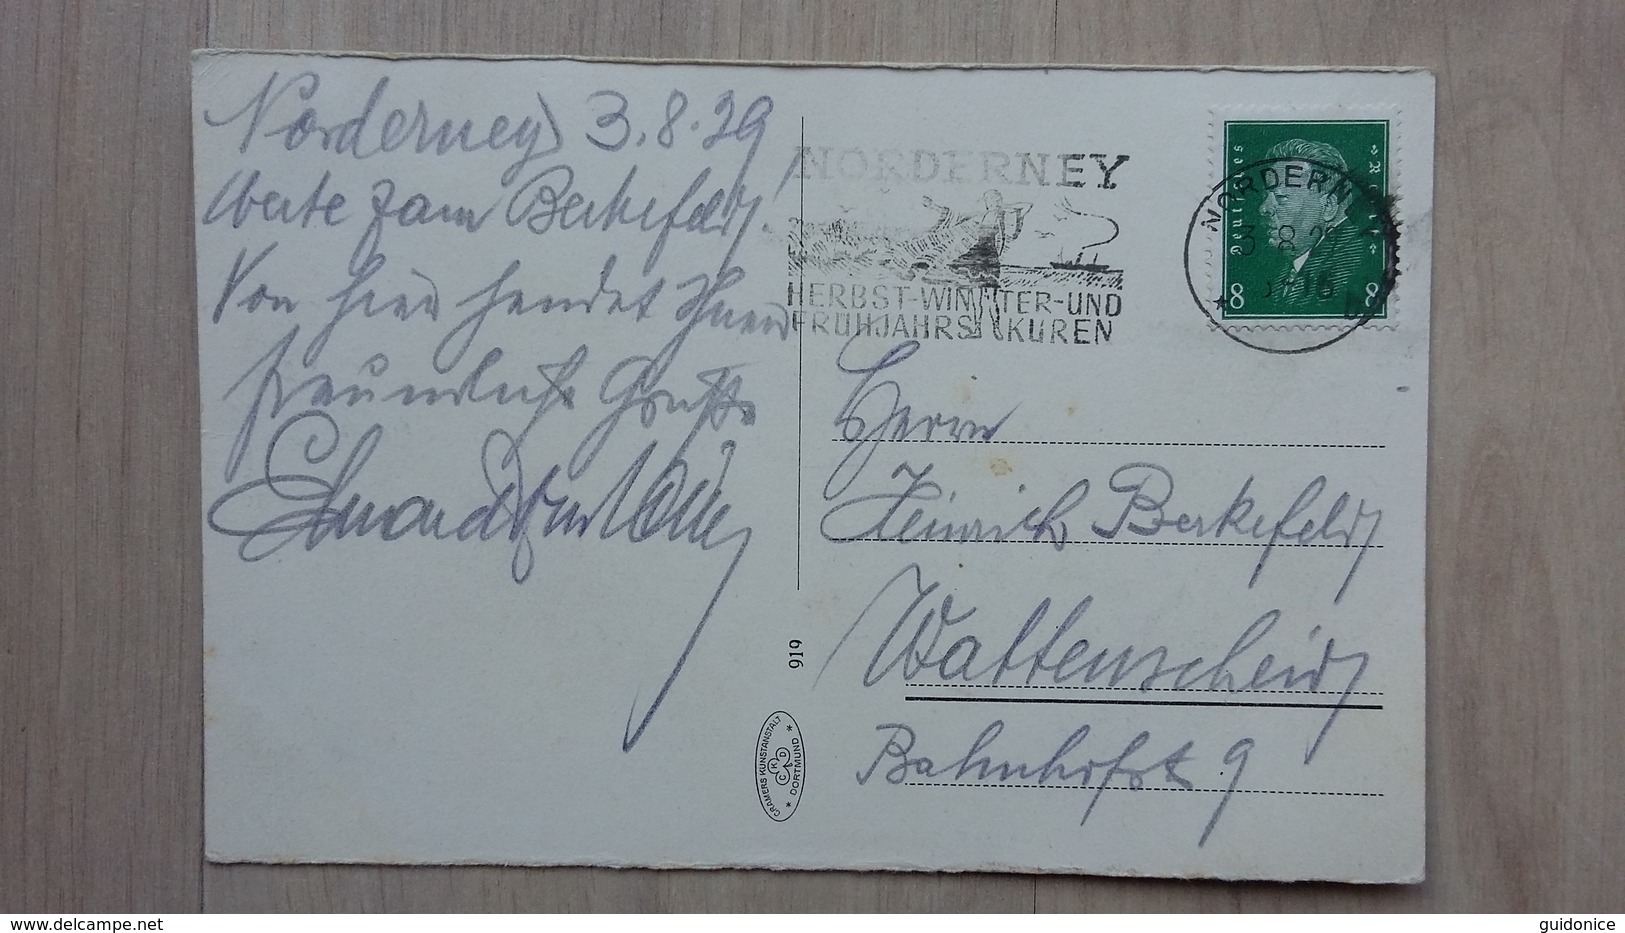 Norderney 3.8.29
Werte Fam Berkefeld!
Von hier sendet Ihnen
freundliche Grüße
NORDERNEY
HERBST-WINTER-UND
FRÜHJAHRS KUREN
Deutsches Reich
8 8
NORDERNEY
3 8 29
Herrn
Heinrich Berkefeld
Wattenscheid
Bahnhofstr 9
919
CRAMERS KUNSTANSTALT * DORTMUND *
CKD
guidonice